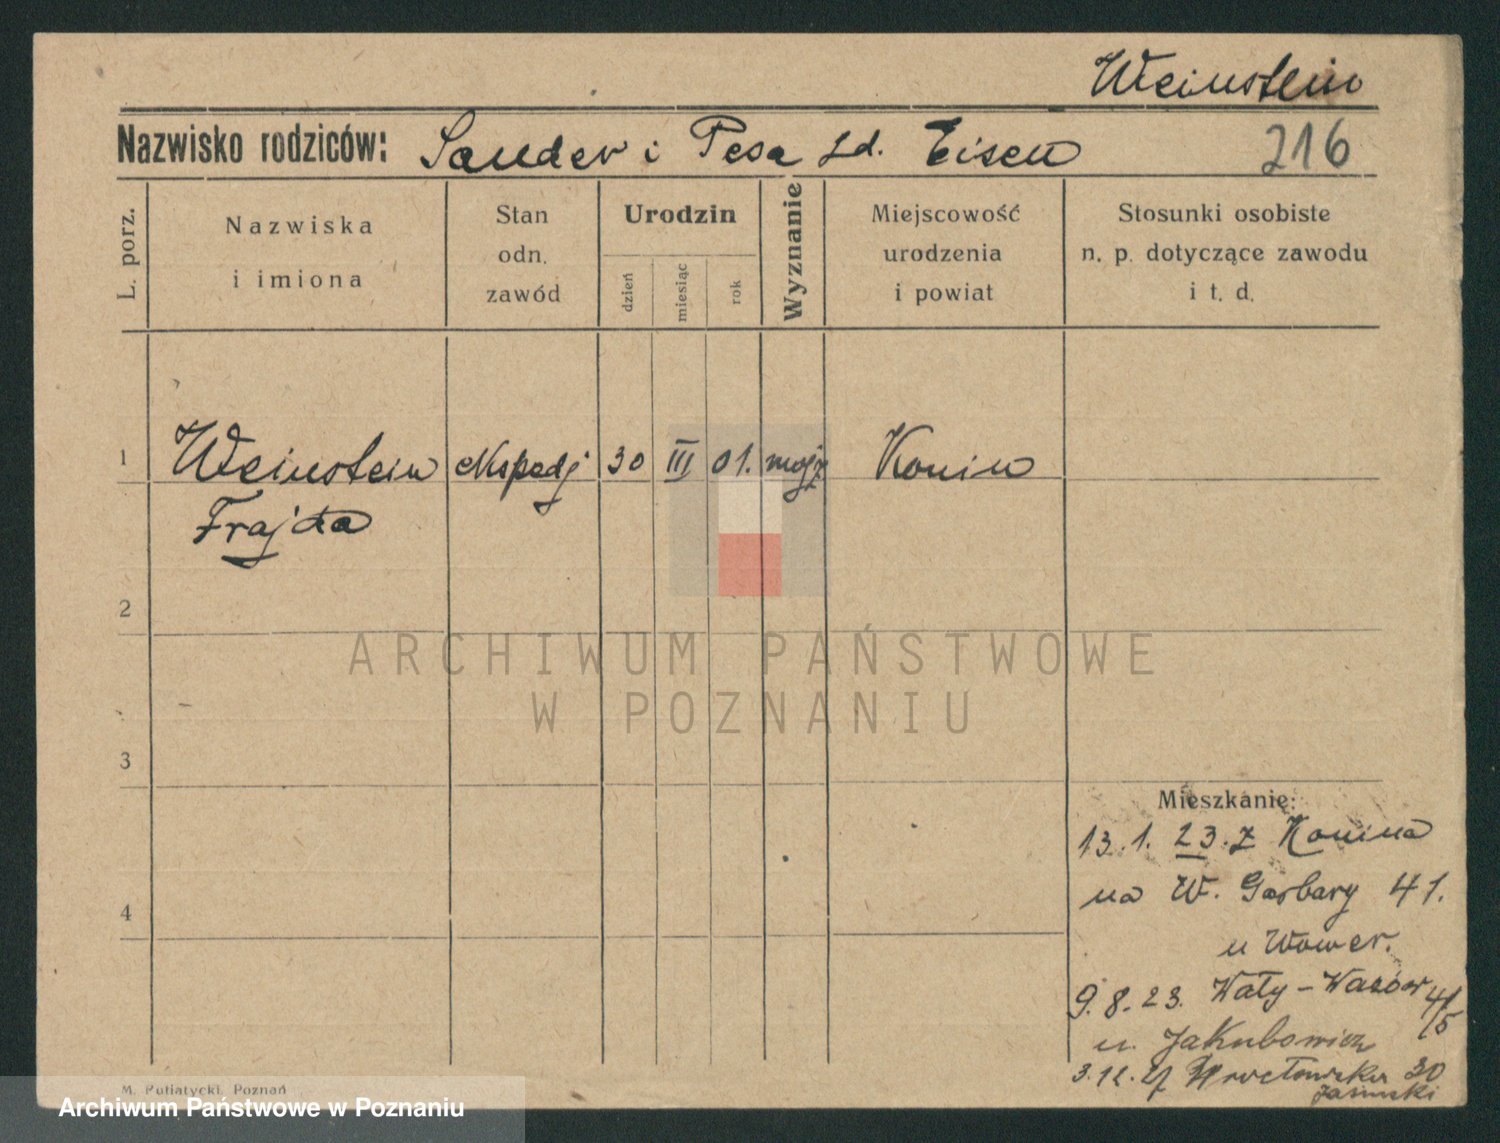 Weinstein
Nazwisko rodziców: Sander i Pesa zd. Eisen 216
L. porz.
Nazwiska
i imiona
Stan
odn.
zawód
Urodzin
dzień
miesiąc
rok
Wyznanie
Miejscowość
urodzenia
i powiat
Stosunki osobiste
n. p. dotyczące zawodu
i t. d.
1 Weinstein ekspedj 30 III 01. mojż Konin
Frajda
2
3
4
Mieszkanie:
13.1.23. z Konina
na W. Garbary 41.
u Wower.
9.8.23. Wały-Wazów 4/5
u. Jakubowicz
3.12. Wrocławska 30
M. Putiatycki, Poznań
ARCHIWUM PAŃSTWOWE
W POZNANIU
Archiwum Państwowe w Poznaniu